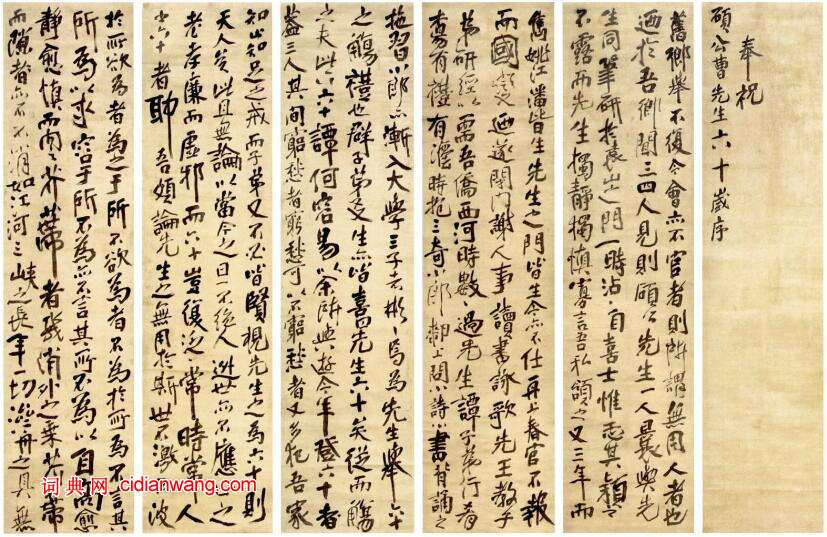 奉祝
碩公曹先生六十歲序
舊鄉舉不復令會亦不官者則所謂無用人者也
迺於吾鄉聞三四人見則碩公先生一人曩與先
生同筆研於袁山之門一時沾沾自喜士惟恐其穎之
不露而先生獨靜獨慎寡言吾私領之又三年而
雋姚江潘皆生先生之門皆生令亦不仕再上春官不報
而國變迺遂閉門謝人事讀書詠歌先王教子
弟研經以需吾僑西河時數過先生譚子弟行肴
有禮有時抱三奇小郎都上問小詩小書背誦之
拖習小郎亦漸入大學三子者彬彬焉為先生舉六十
之觴禮也群子弟及生亦皆喜先生六十矣從而觴
之夫此六十譚何容易以余所與游今年登六十者
蓋三人其間窮愁者窮愁可以不窮愁者又多犯吾家
知止知足之戒而子弟又不必皆賢視先生之為六十則
天人矣此且無論以當今之日一不人迯世亦不應之
老孝廉而虛邪而六十豈復泛常時常人
之六十者耶吾頌論先生之無用於斯世不激波
於所欲為者為之于所不欲為者不為於所為不言其
所為以求容于所不為亦不言其所不為以自高愈
靜愈慎而芥蒂者幾消外之乘芥蒂
而隙者亦不不消如江河三峽之長年一切濟舟之具無
词典网 cidianwang.com